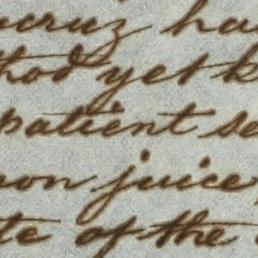 cruz ha
hod yet k
patient se
on juice
te of the